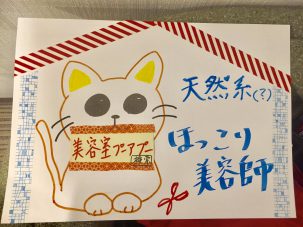 天然系(?)
ほっこり
美容師
美容室プーアプー